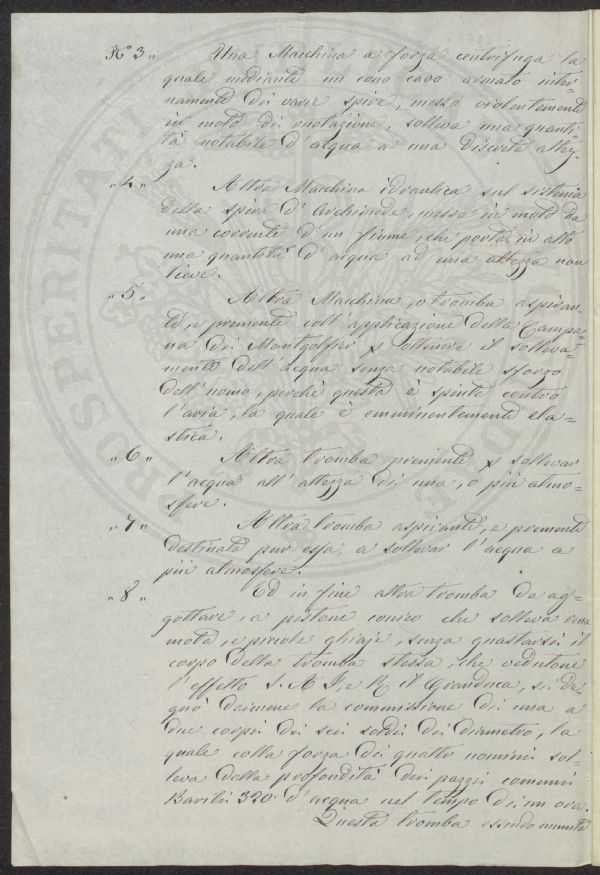 N.° 3 „ Una Macchina a forza centrifuga la
quale mediante un cono cavo armato inter-
namente di varie spire, messo violentemente
in moto di rotazione, solleva una quanti-
tà notabile d'acqua a una discreta altez-
za.
„ 4 „ Altra Macchina idraulica sul sistema
della spira d'Archimede, messa in moto da
una corrente d'un fiume, che porta in alto
una quantità d'acqua ad una altezza non
lieve.
„ 5 „ Altra Macchina, o tromba aspiran-
te, e premente coll'applicazione della Campa-
na di Montgolfier p ottenere il solleva-
mento dell'acqua senza notabile sforzo
dell'uomo, perchè questa è spinta contro
l'aria, la quale è emminentemente ela-
stica.
„ 6 „ Altra tromba premente p sollevar
l'acqua all'altezza di una, o più atmo-
sfere.
„ 7 „ Altra tromba aspirante, e premente
destinata pur essa a sollevar l'acqua a
più atmosfere.
„ 8 „ Ed in fine altra tromba da ag-
gottare, a pistone conico che solleva rena
mota, e piccole ghiaje, senza guastarsi il
corpo della tromba stessa, che vedutone
l'effetto S. A. I. e R. il Granduca, si de-
gnò darmene la commissione di una a
due corpi di sei soldi di diametro, la
quale colla forza di quattro uomini sol-
leva dalla profondità dei pozzi comuni
Barili 320 d'acqua nel tempo di un ora.
Questa tromba essendo munita
PROSPERITA